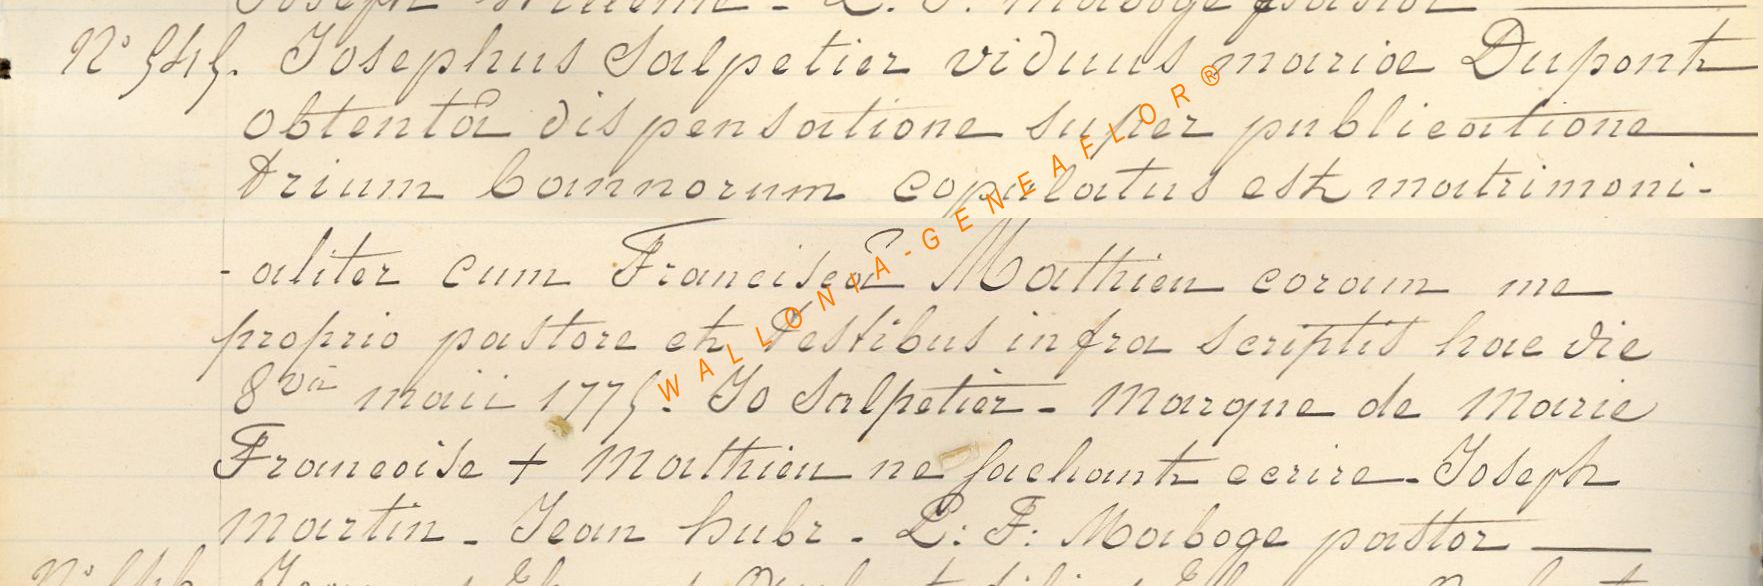 Joseph L. F. Maboge pastor
N° 545. Josephus Salpetier viduus mariæ Dupont
obtentâ dispensatione super publicatione
trium bannorum copulatus est matrimoni-
-aliter cum Franciscâ Mathieu coram me
proprio pastore et testibus infra scriptis hac die
8va maii 1775. Jo Salpetier - marque de marie
Francoise + mathieu ne sachant ecrire - Joseph
martin - Jean hubr - L: F: Maboge pastor
WALLONIA-GENEAFLOR®